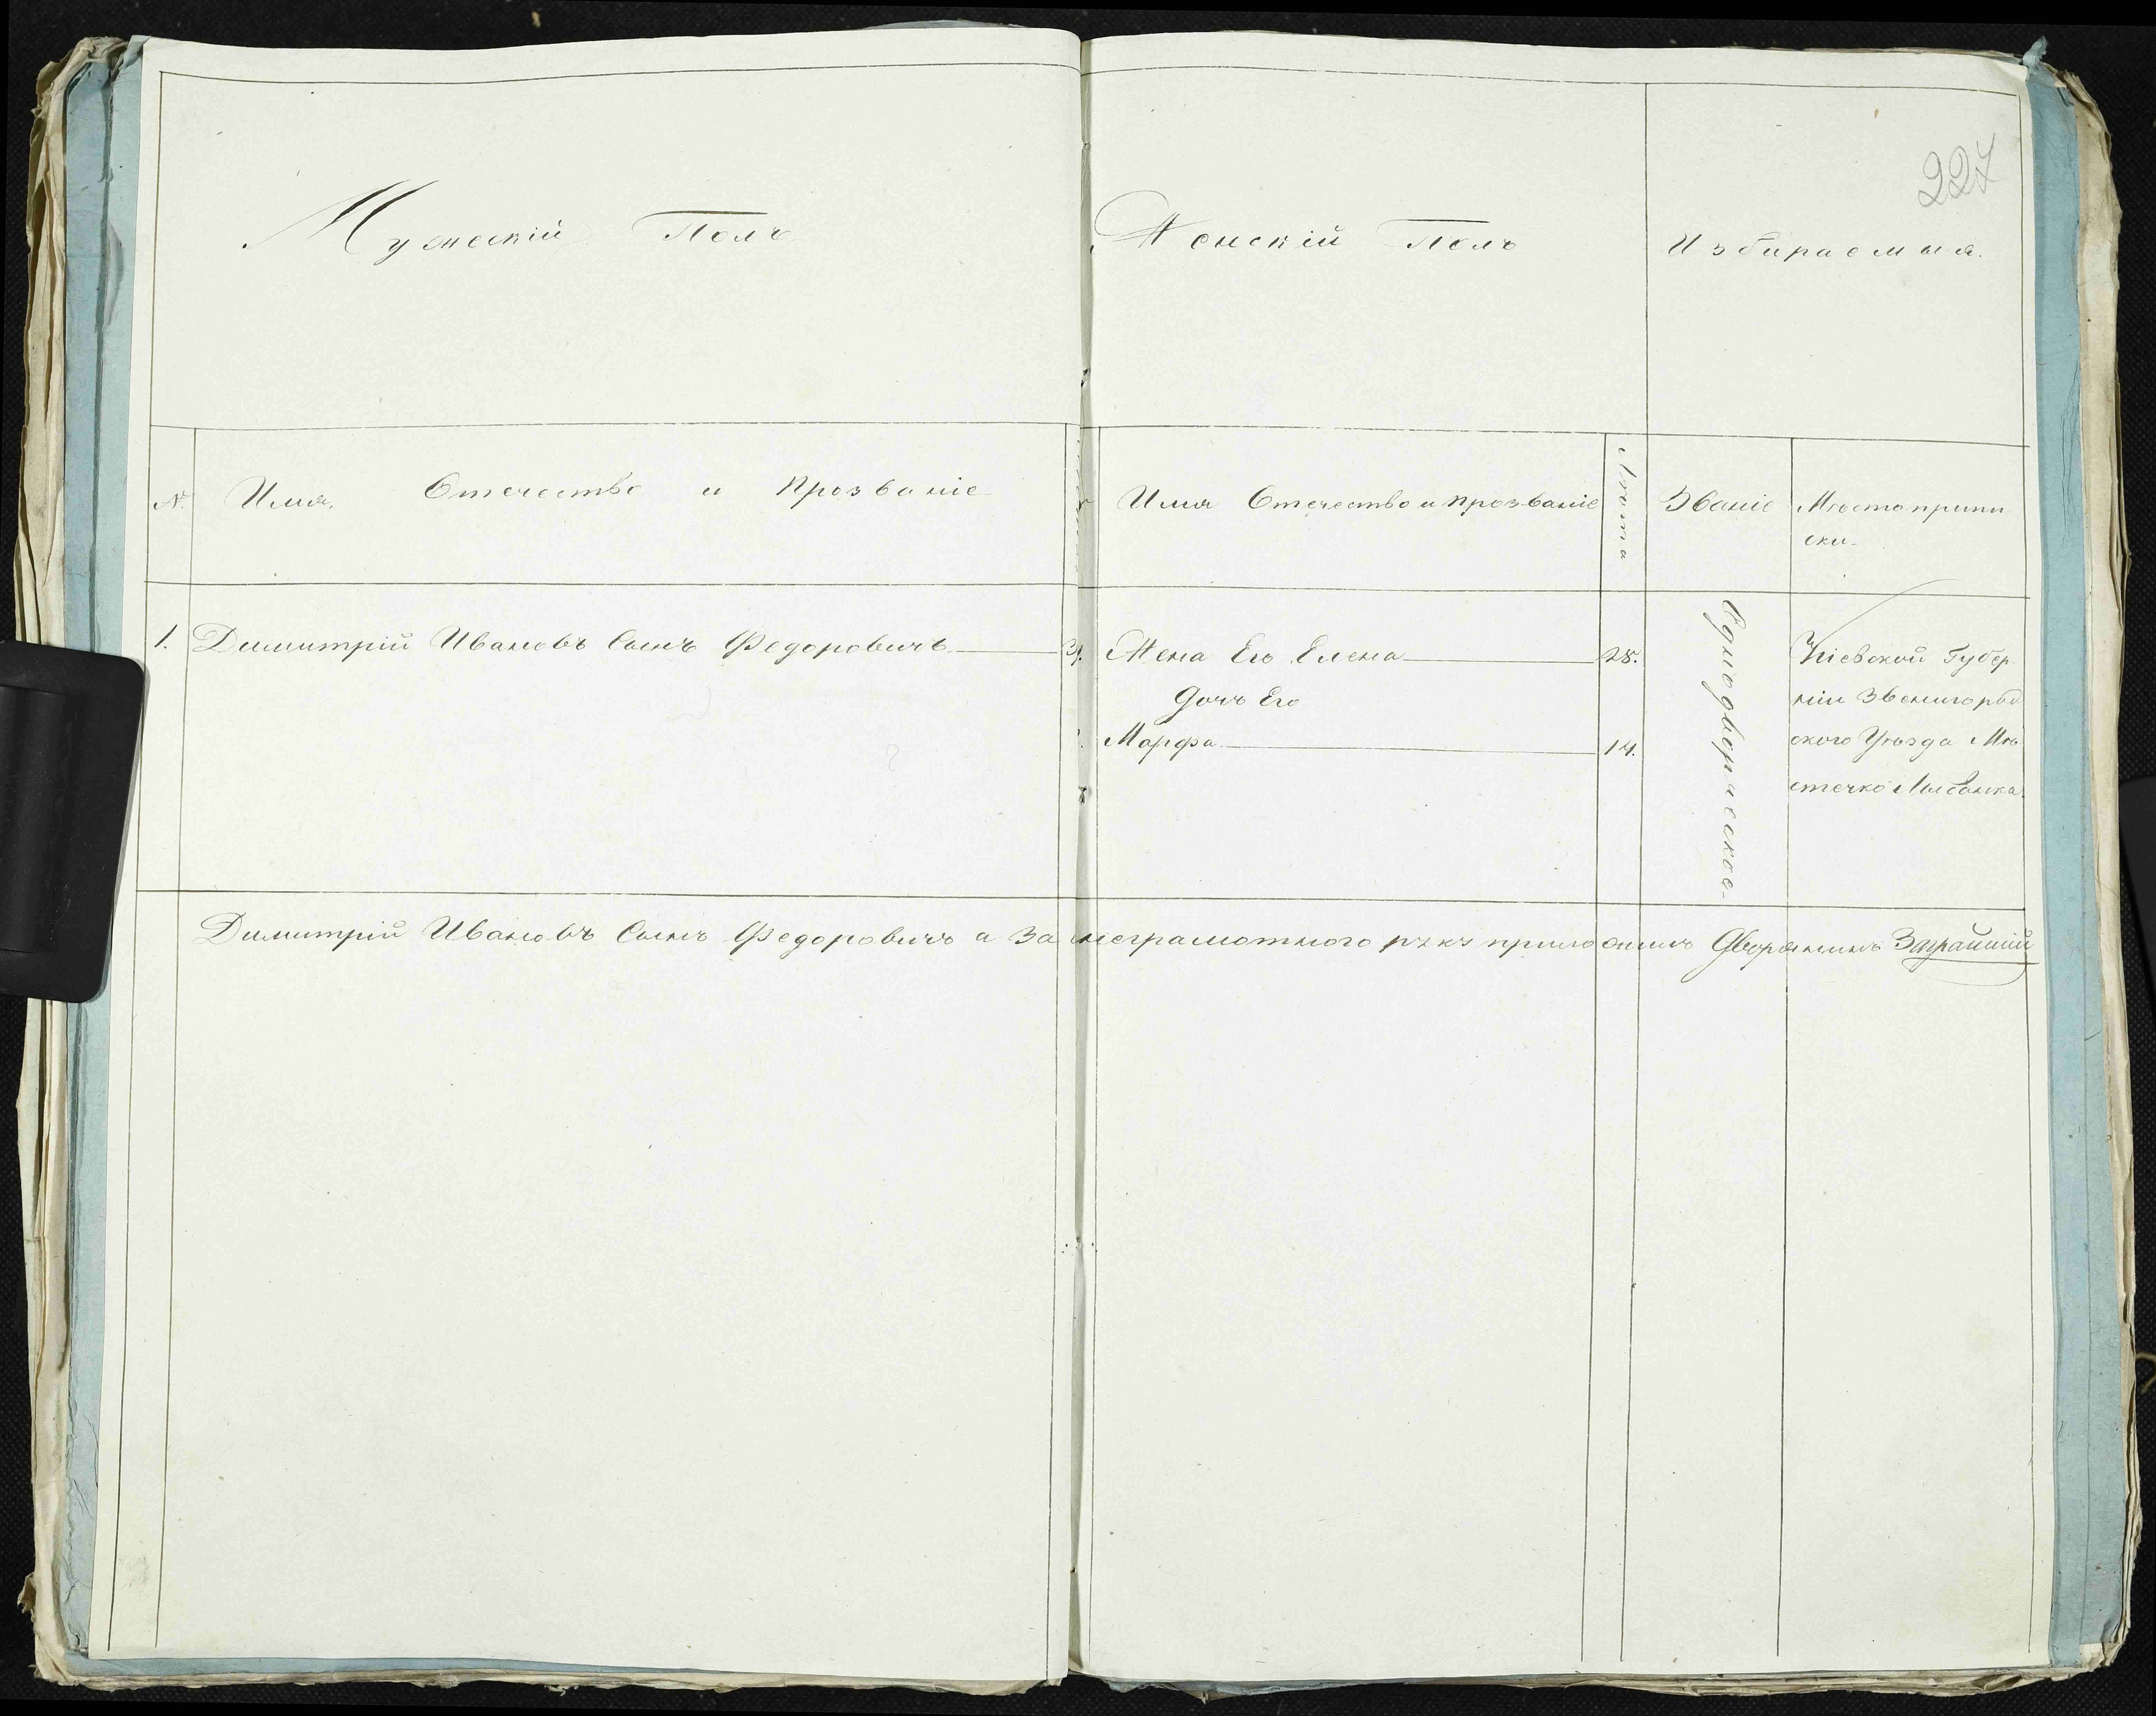 227
Мужескій Полъ
Женскій Полъ
Избираемыя.
№
Имя, Отечество и Прозваніе
Имя Отечество и прозваніе
Лѣта
Званіе
Мѣсто припи
ски
1. Димитрій Ивановъ Сынъ Федоровичъ
Жена Его Елена 28.
Дочъ Его
Марфа 14.
Однодворческое
Кіевской Губер
ніи Звенигород
ского Уѣзда Мѣ
стечко Лысянка
Димитрій Ивановъ Сынъ Федоровичъ а За неграмотного рукъ приложилъ Дворянинъ